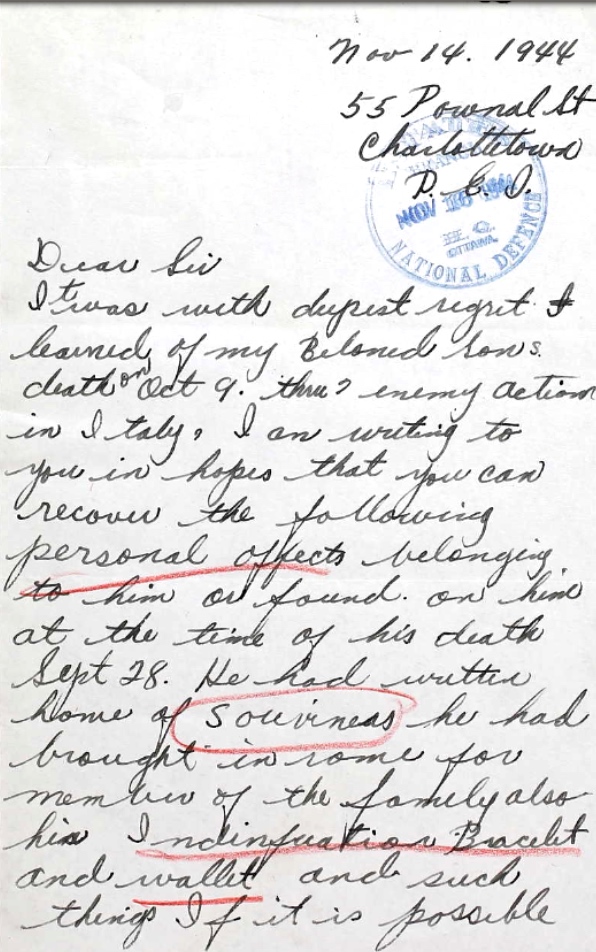 Nov 14. 1944
55 Pownal St
Charlottetown
P. E. I.
ESTATES
BRANCH
NOV 1944
H.Q.
OTTAWA
NATIONAL DEFENCE
Dear Sir
It was with deepest regret I
learned of my Beloved Sons
death on Oct 9. thru enemy action
in Italy, I an writing to
you in hopes that you can
recover the following
personal effects belonging
to him or found. on him
at the time of his death
Sept 28. He had written
home of Souvineas he had
brought in rome for
member of the family also
his Indinfuation Bracelet
and wallet and such
things If it is possible